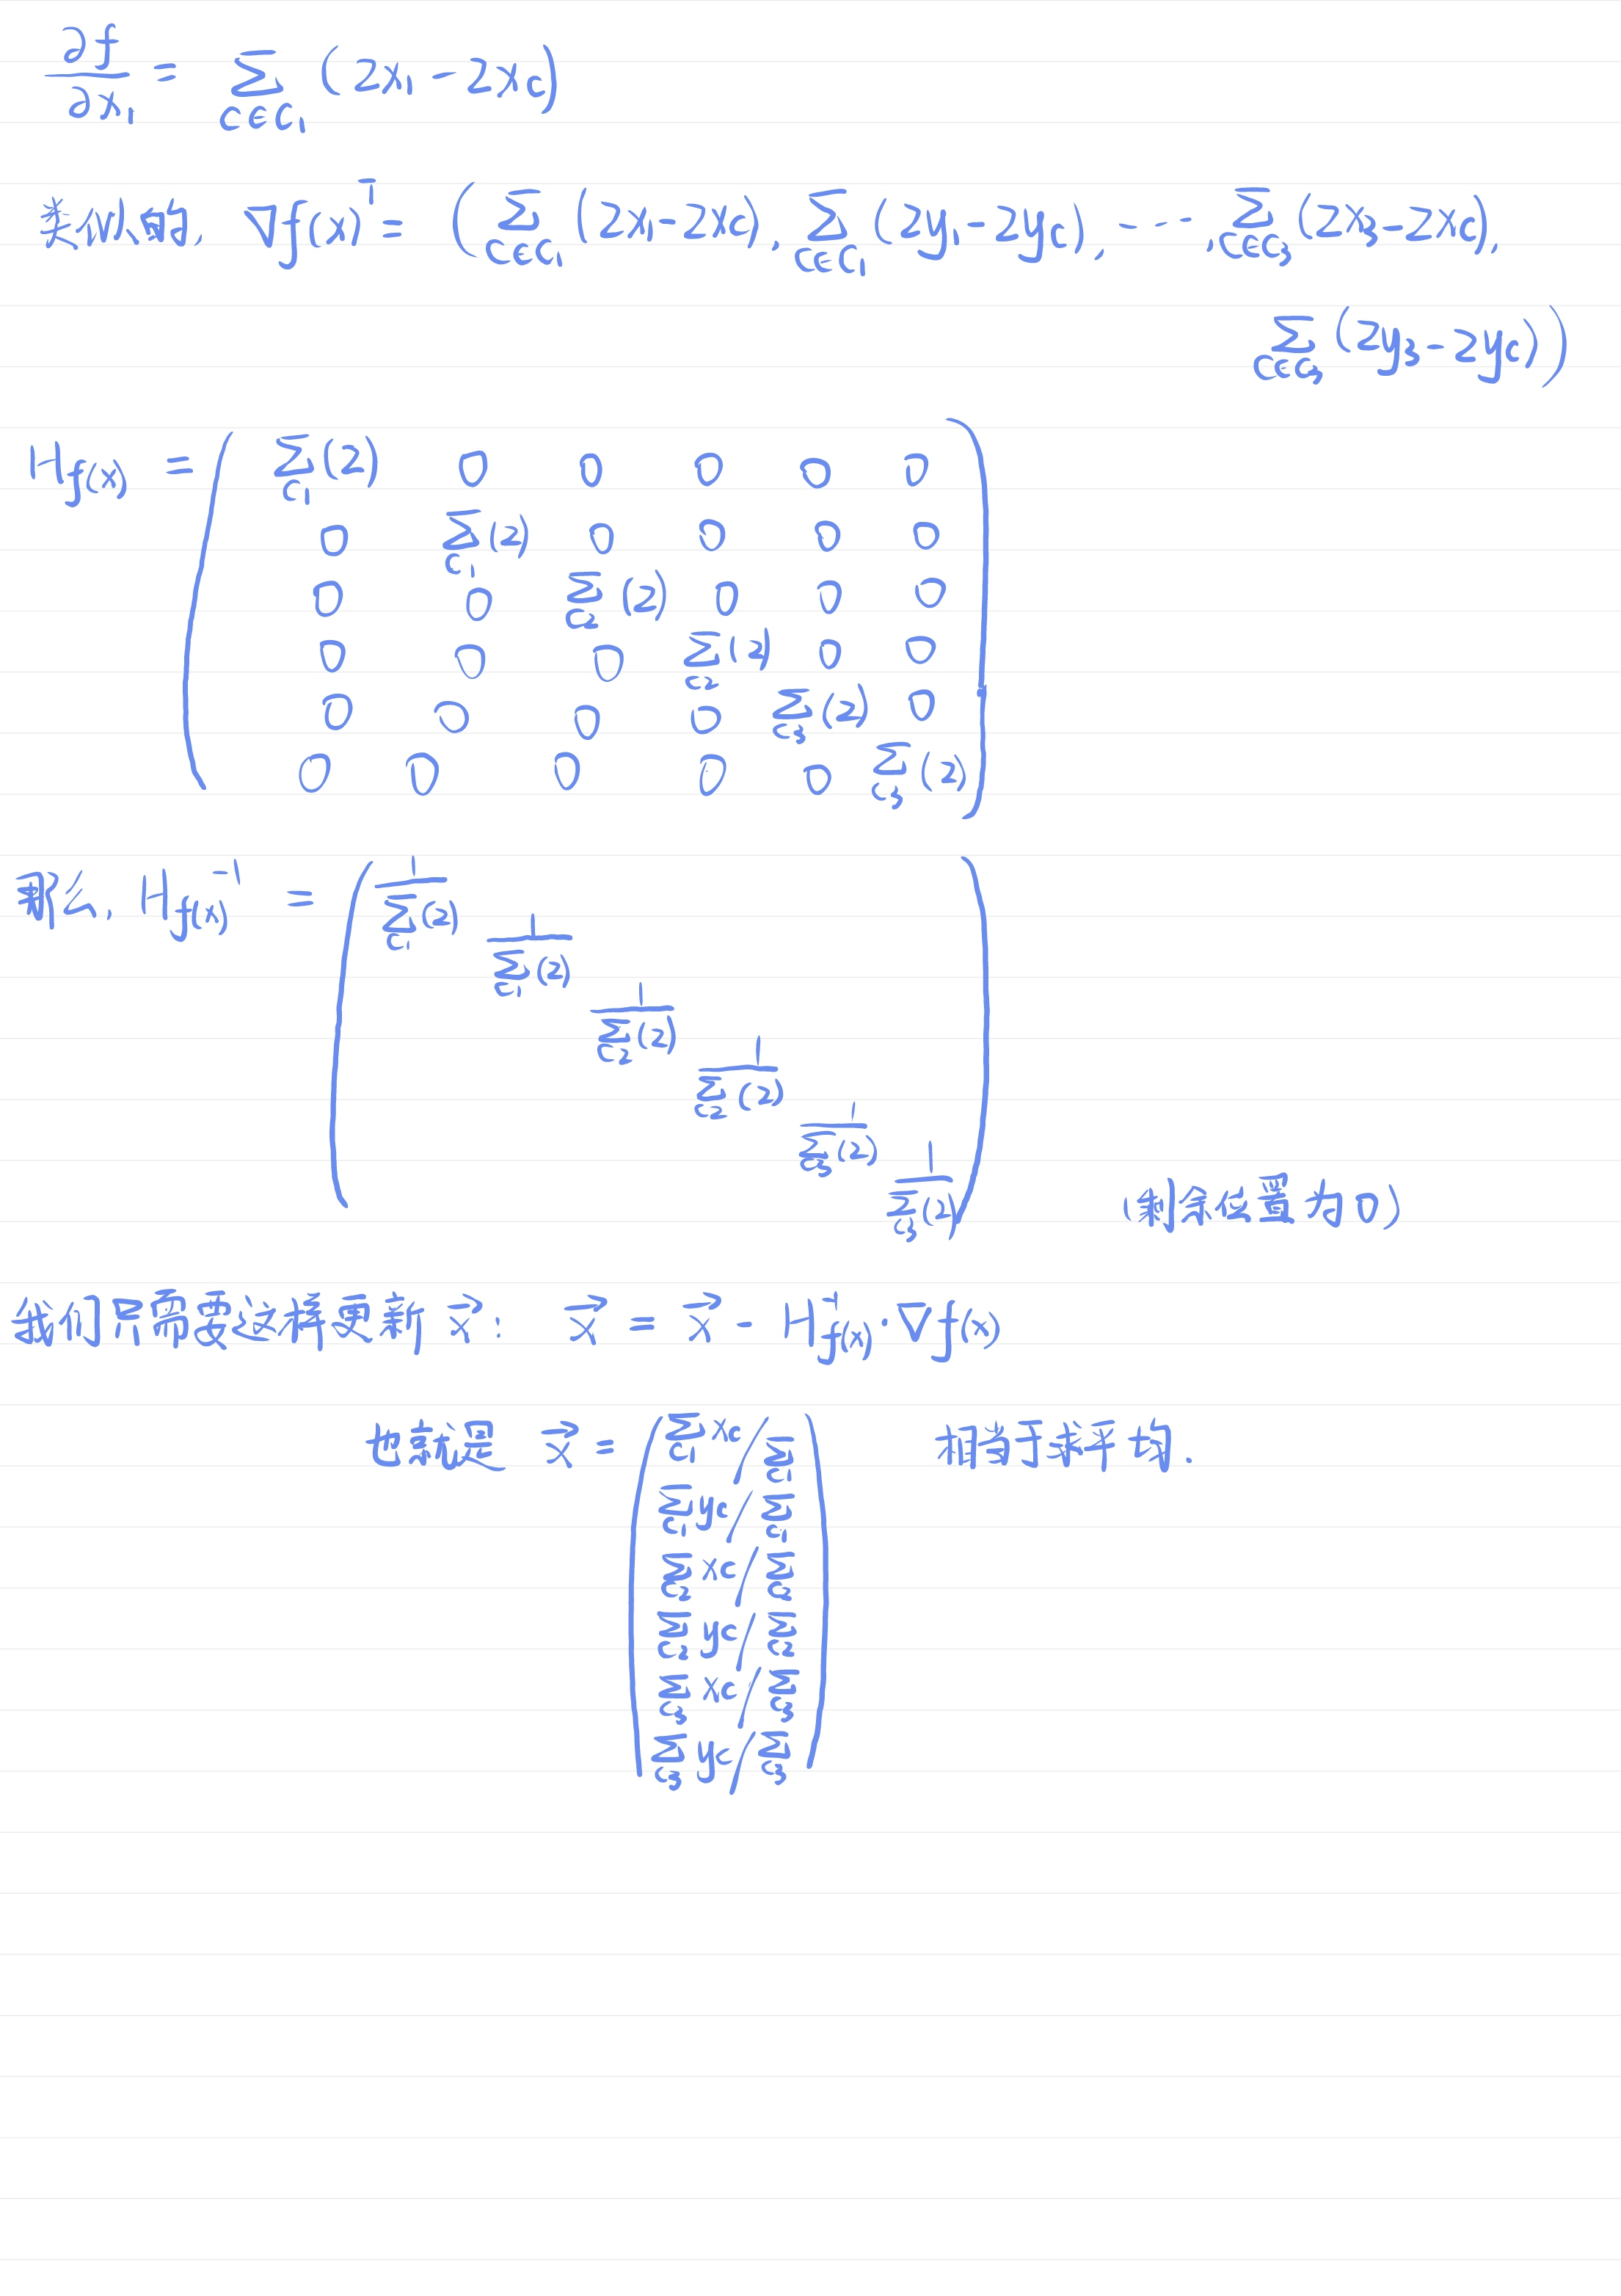 ∂f/∂x₁ = Σ_{c∈C₁} (2x₁ - 2xc)
类似的, ∇f(x)ᵀ = (Σ_{c∈C₁} (2x₁ - 2xc), Σ_{c∈C₁} (2y₁ - 2yc), ---, Σ_{c∈C₃} (2x₃ - 2xc),
Σ_{c∈C₃} (2y₃ - 2yc))
H_{f(x)} = ( Σ_{C₁}(2) 0 0 0 0 0
0 Σ_{C₁}(2) 0 0 0 0
0 0 Σ_{C₂}(2) 0 0 0
0 0 0 Σ_{C₂}(2) 0 0
0 0 0 0 Σ_{C₃}(2) 0
0 0 0 0 0 Σ_{C₃}(2) )
那么, H_{f(x)}⁻¹ = ( 1/Σ_{C₁}(2)
1/Σ_{C₁}(2)
1/Σ_{C₂}(2)
1/Σ_{C₂}(2)
1/Σ_{C₃}(2)
1/Σ_{C₃}(2) ) (剩余位置为0)
我们只需要这样更新 x⃗: x⃗ = x⃗ - H⁻¹_{f(x)}·∇f(x)
也就是 x⃗ = ( Σ_{C₁} xc / Σ_{C₁} 相当于求平均.
Σ_{C₁} yc / Σ_{C₁}
Σ_{C₂} xc / Σ_{C₂}
Σ_{C₂} yc / Σ_{C₂}
Σ_{C₃} xc / Σ_{C₃}
Σ_{C₃} yc / Σ_{C₃} )